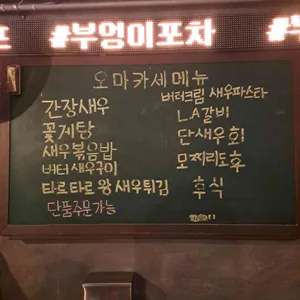 #부엉이포차
오마카세메뉴
간장새우
꽃게탕
새우볶음밥
버터새우구이
타르타르왕새우튀김
단품주문가능
버터크림 새우파스타
LA갈비
단새우회
모찌리도후
후식